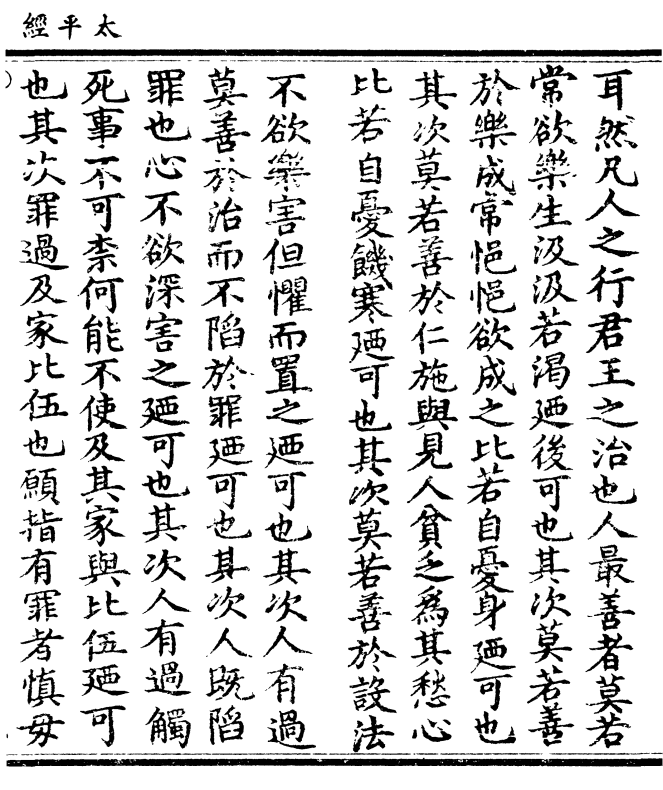 太平經
耳然凡人之行君王之治也人最善者莫若
常欲樂生汲汲若渴廼後可也其次莫若善
於樂成常悒悒欲成之比若自憂身廼可也
其次莫若善於仁施與見人貧乏爲其愁心
比若自憂饑寒廼可也其次莫若善於設法
不欲樂害但懼而置之廼可也其次人有過
莫善於治而不陷於罪廼可也其次人旣陷
罪也心不欲深害之廼可也其次人有過觸
死事不可柰何能不使及其家與比伍廼可
也其次罪過及家比伍也願指有罪者愼毋